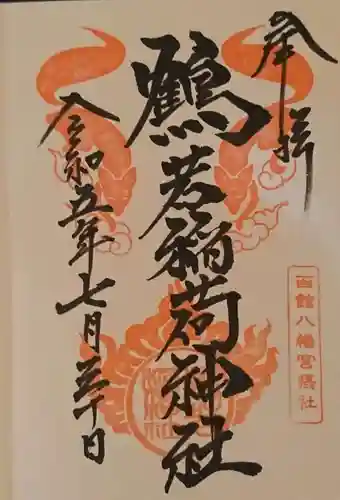 奉拝
鶴若稲荷神社
令和五年七月三十日
函館八幡宮隅社